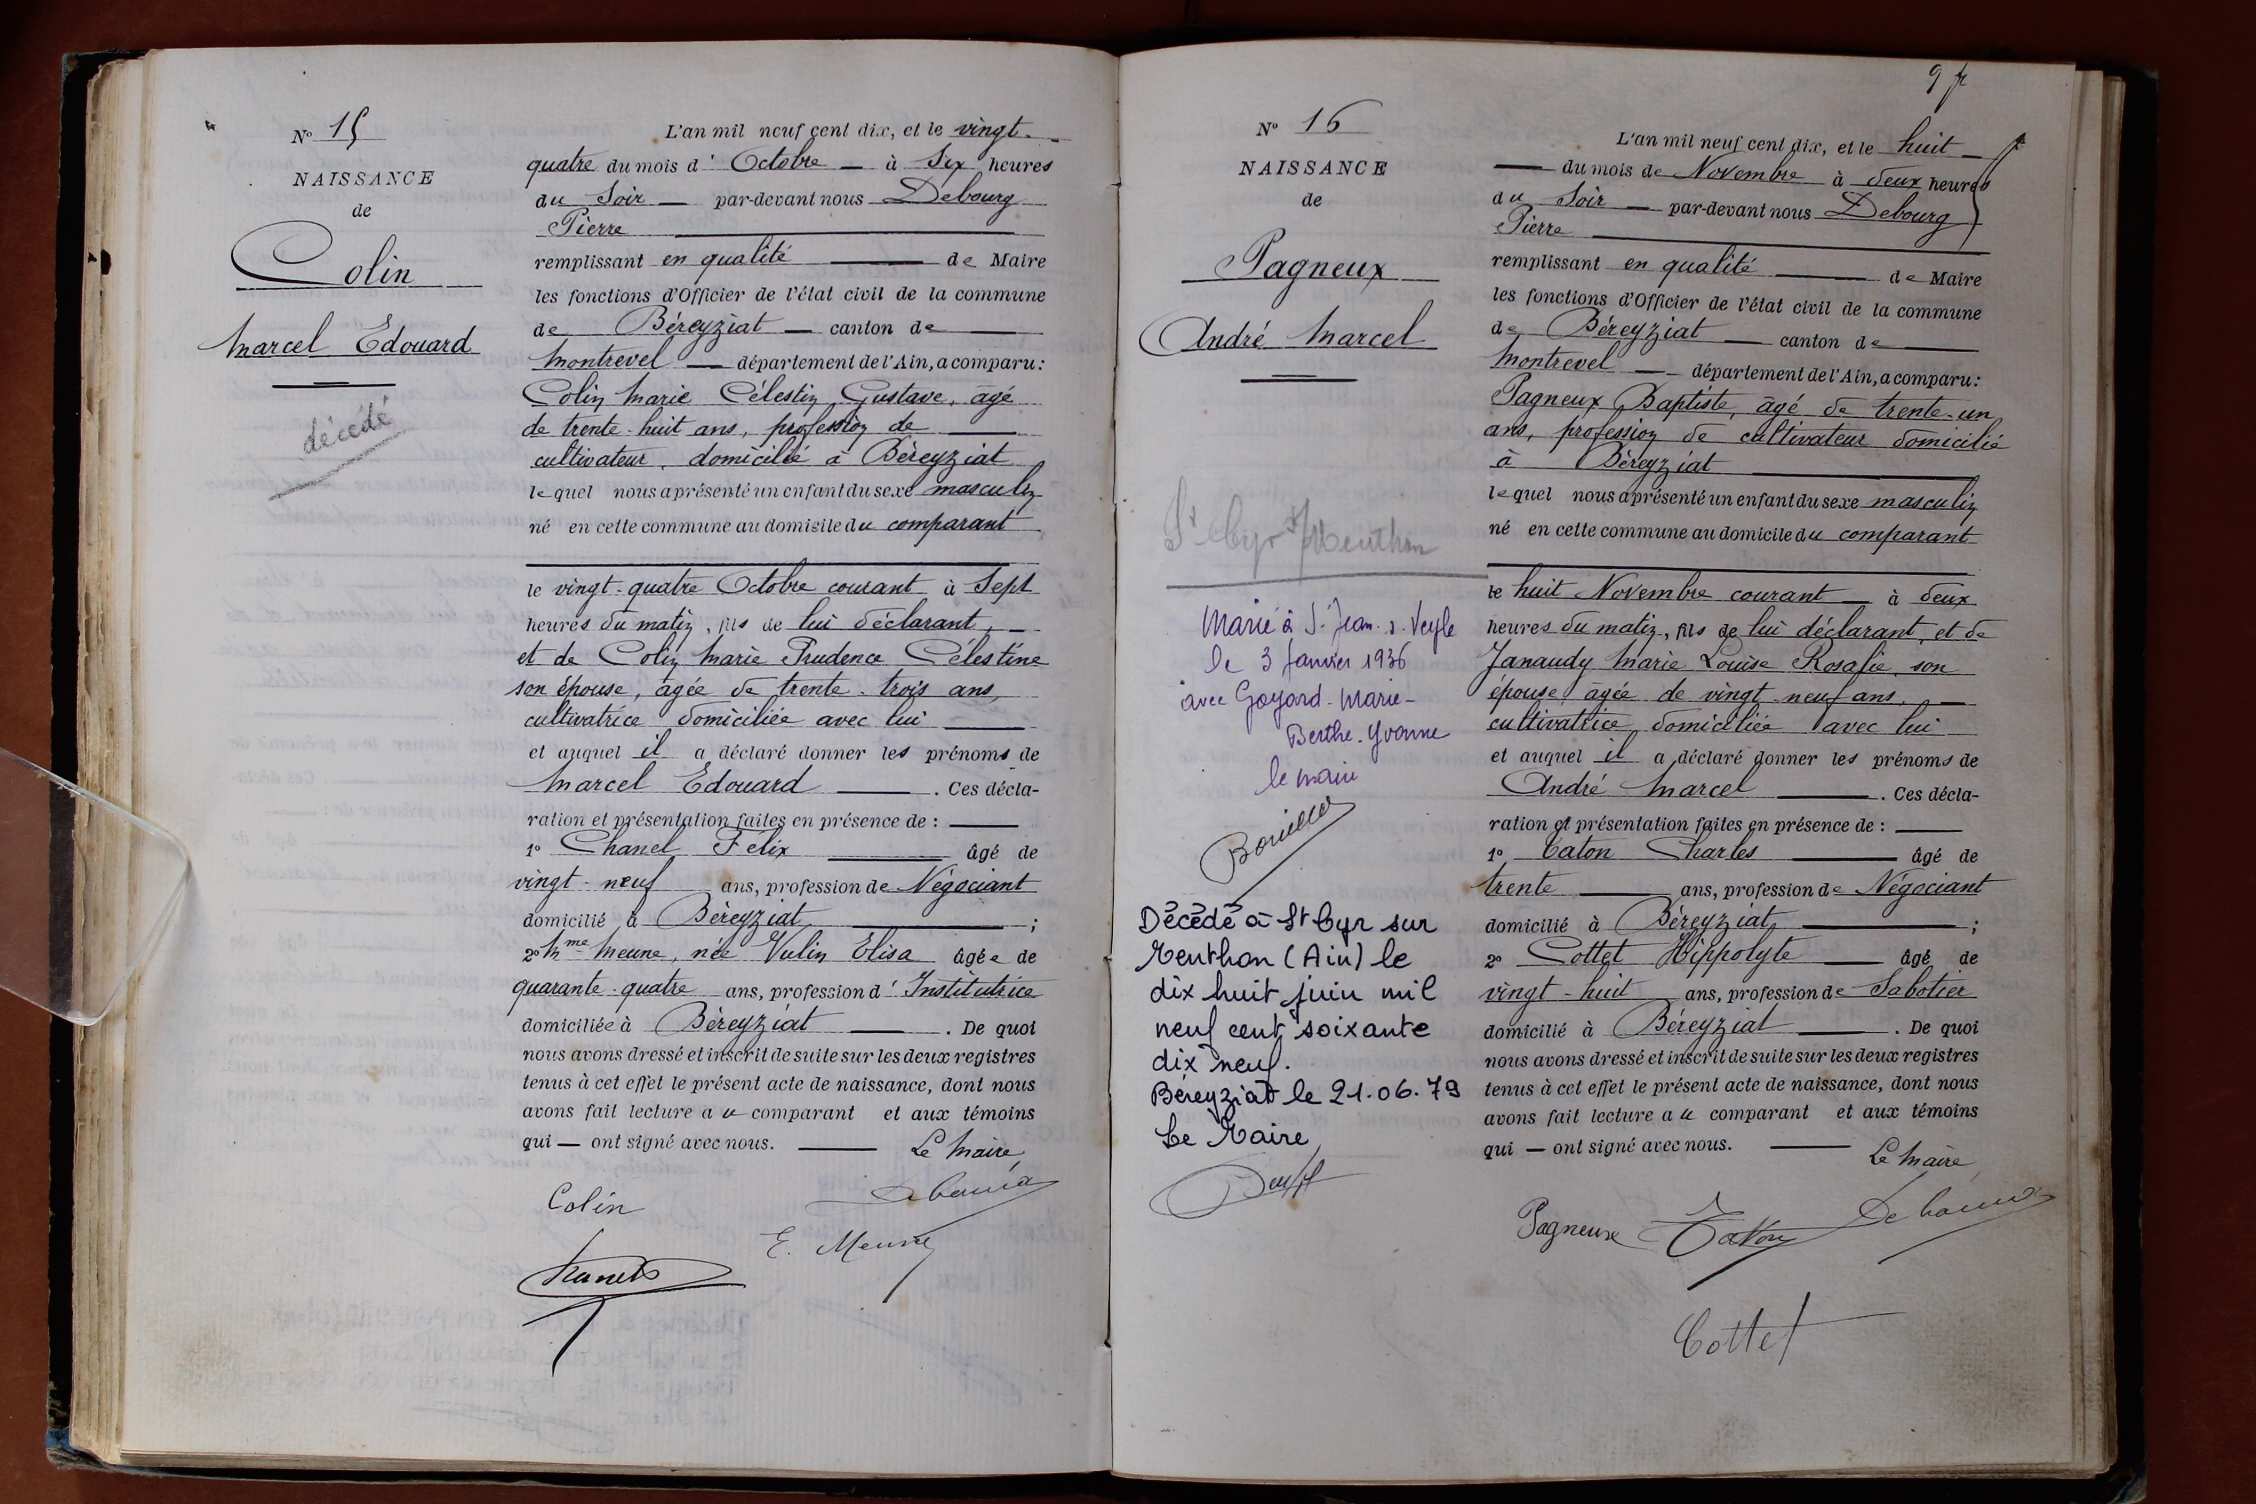 N° 15
NAISSANCE
de
Colin
Marcel Edouard
décédé
L'an mil neuf cent dix, et le vingt-
quatre du mois d' Octobre — à Six heures
du Soir — par-devant nous Debourg
Pierre
remplissant en qualité — de Maire
les fonctions d'Officier de l'état civil de la commune
de Béreyziat — canton de —
Montrevel — département de l'Ain, a comparu :
Colin Marie Célestin Gustave, âgé
de trente-huit ans, profession de —
cultivateur, domicilié à Béreyziat
lequel nous a présenté un enfant du sexe masculin
né en cette commune au domicile du comparant
le vingt-quatre Octobre courant à Sept
heures du matin, fils de lui déclarant, —
et de Colin Marie Prudence Célestine
son épouse, âgée de trente-trois ans,
cultivatrice domiciliée avec lui —
et auquel il a déclaré donner les prénoms de
Marcel Edouard — . Ces décla-
ration et présentation faites en présence de : —
1° Chanel Félix — âgé de
vingt-neuf ans, profession de Négociant
domicilié à Béreyziat — ;
2° Mme Meune, née Vulin Elisa âgée de
quarante-quatre ans, profession d' Institutrice
domiciliée à Béreyziat — . De quoi
nous avons dressé et inscrit de suite sur les deux registres
tenus à cet effet le présent acte de naissance, dont nous
avons fait lecture au comparant et aux témoins
qui — ont signé avec nous. — Le Maire,
Colin Debourg
E. Meune
Chanel
9 f
N° 16
NAISSANCE
de
Pagneux
André Marcel
St Cyr s/ Menthon
Marié à St Jean. s. Veyle
le 3 Janvier 1936
avec Goyard Marie-
Berthe-Yvonne
le maire
Décédé à St Cyr sur
Menthon (Ain) le
dix huit juin mil
neuf cent soixante
dix neuf.
Béreyziat le 21.06.79
Le Maire
L'an mil neuf cent dix, et le huit —
— du mois de Novembre à deux heures
du Soir — par-devant nous Debourg
Pierre
remplissant en qualité — de Maire
les fonctions d'Officier de l'état civil de la commune
de Béreyziat — canton de —
Montrevel — département de l'Ain, a comparu :
Pagneux Baptiste, âgé de trente-un
ans, profession de cultivateur domicilié
à Béreyziat —
lequel nous a présenté un enfant du sexe masculin
né en cette commune au domicile du comparant
le huit Novembre courant — à deux
heures du matin, fils de lui déclarant, et de
Janaudy Marie Louise Rosalie, son
épouse âgée de vingt-neuf ans, —
cultivatrice domiciliée avec lui
et auquel il a déclaré donner les prénoms de
André Marcel — . Ces décla-
ration et présentation faites en présence de : —
1° Caton Charles — âgé de
trente — ans, profession de Négociant
domicilié à Béreyziat — ;
2° Cottet Hippolyte — âgé de
vingt-huit ans, profession de Sabotier
domicilié à Béreyziat — . De quoi
nous avons dressé et inscrit de suite sur les deux registres
tenus à cet effet le présent acte de naissance, dont nous
avons fait lecture au comparant et aux témoins
qui — ont signé avec nous. — Le Maire,
Pagneux Caton Debourg
Cottet